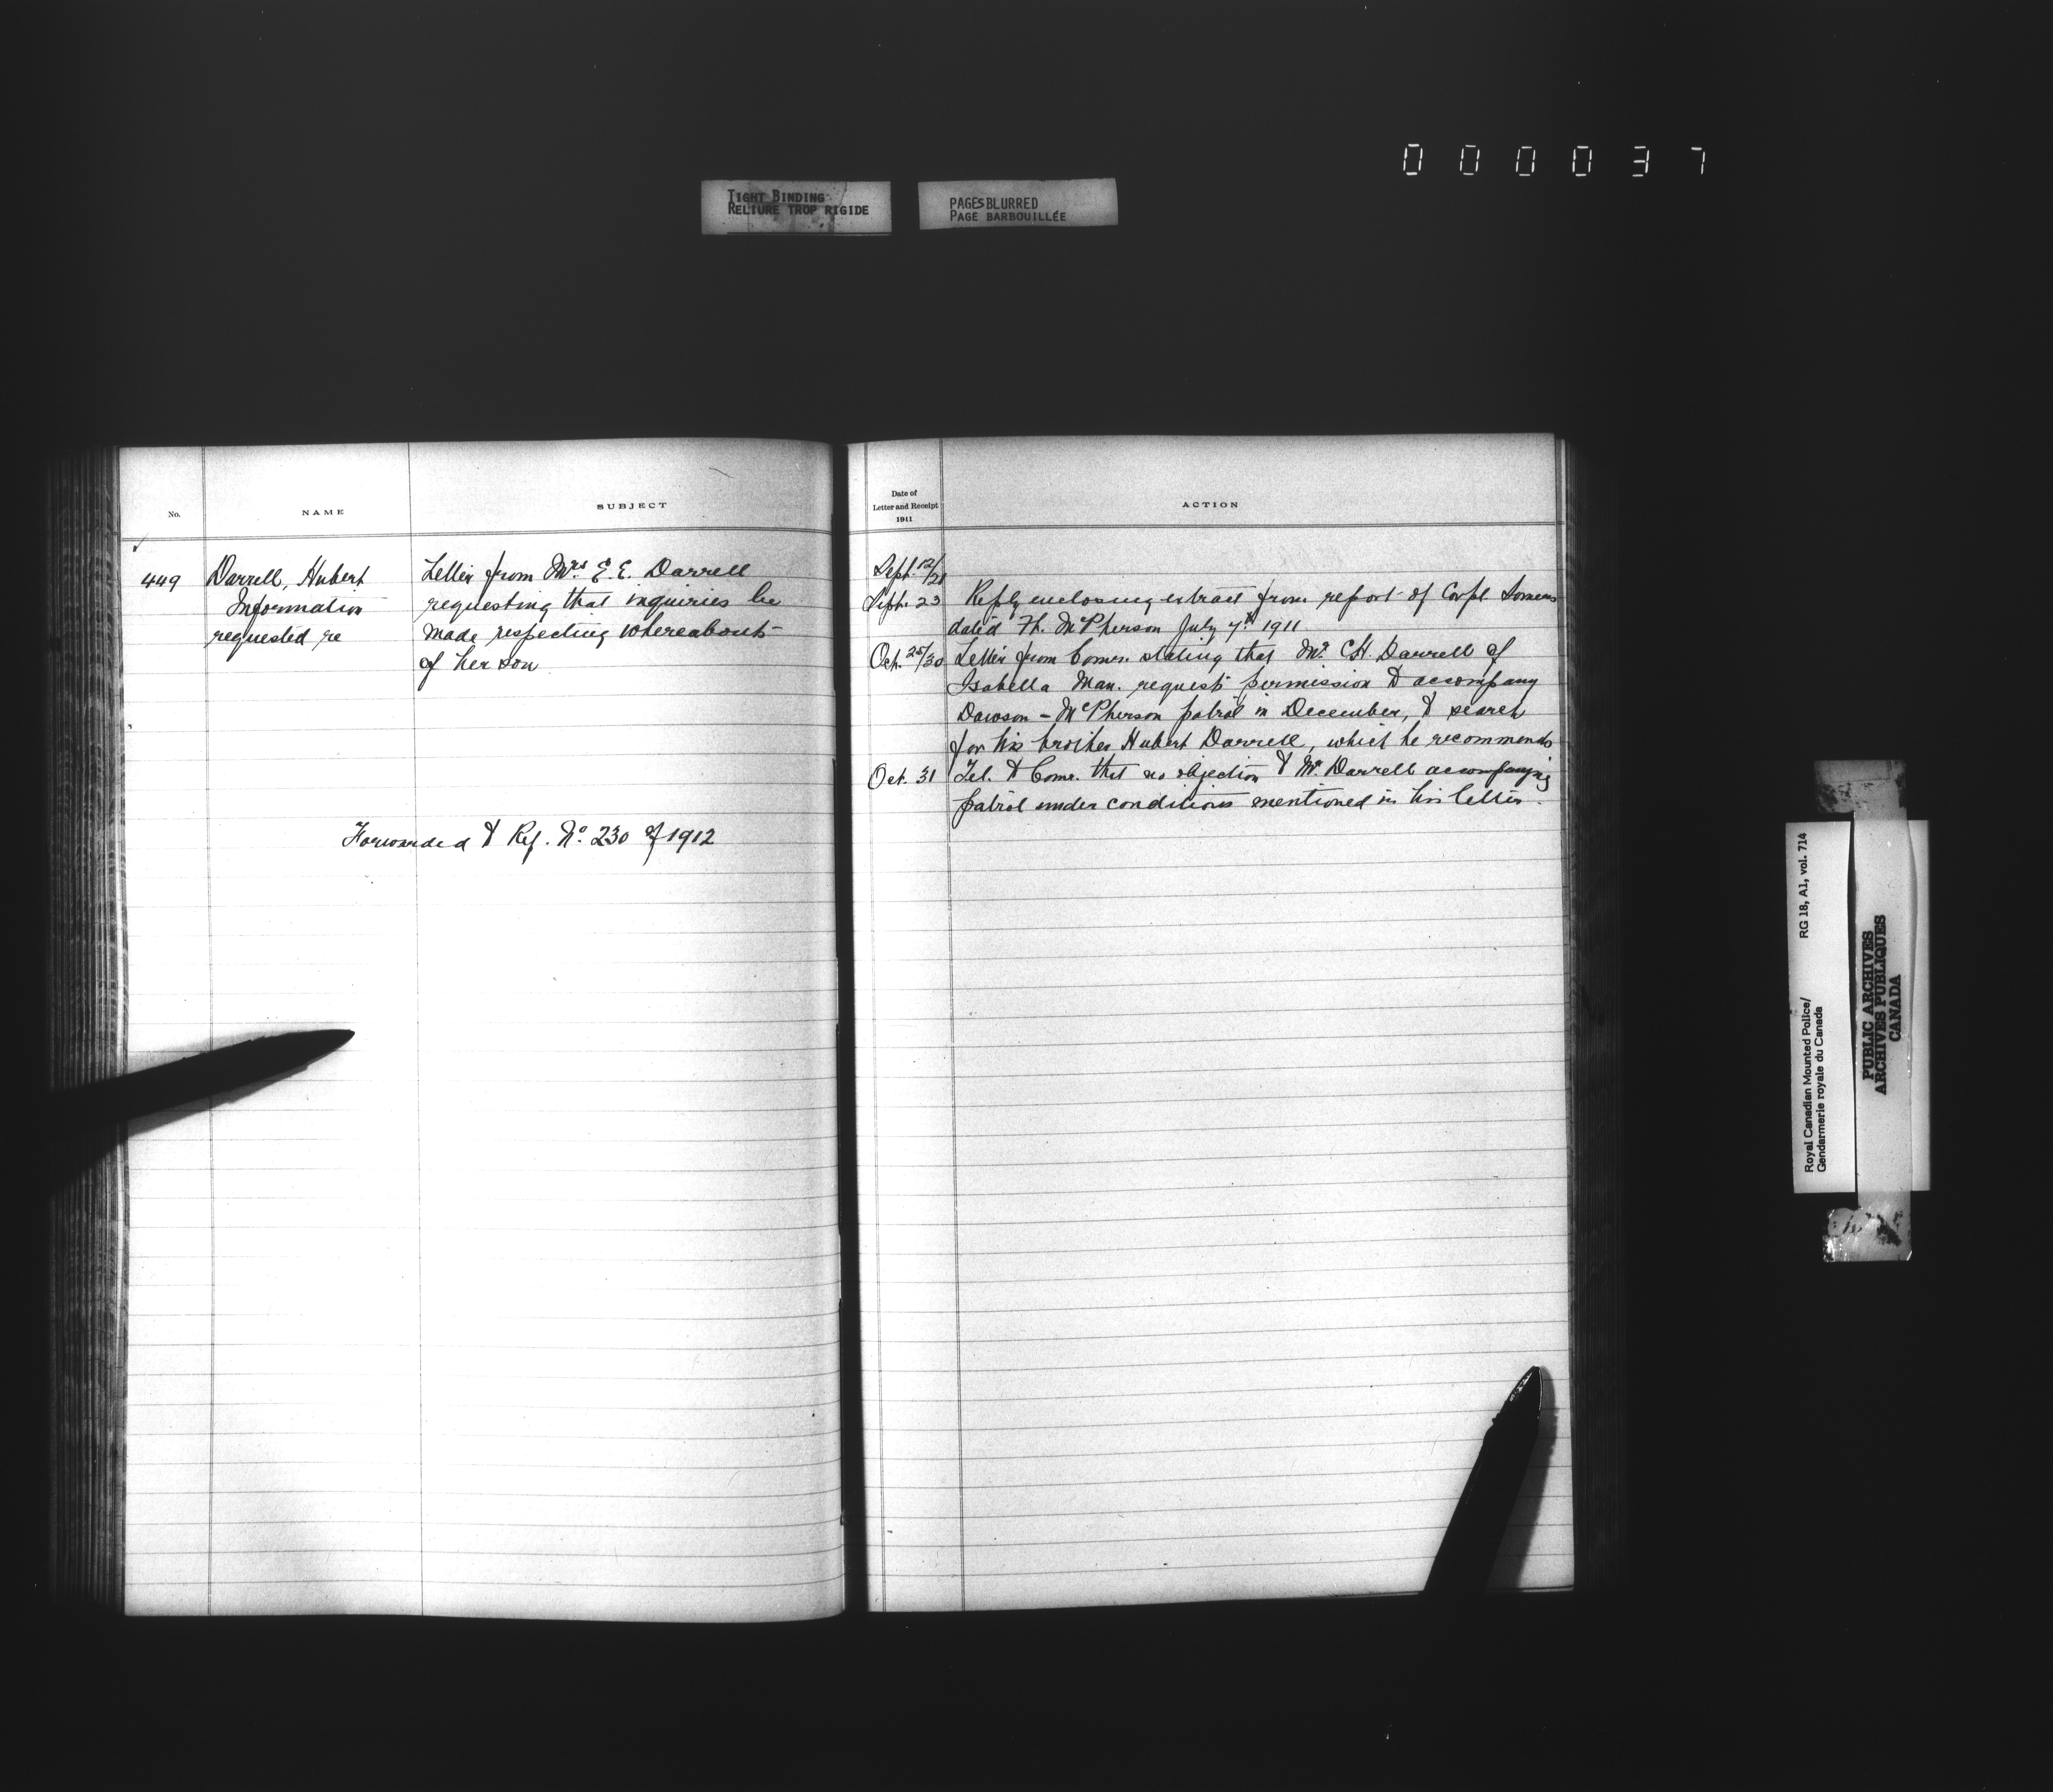 0 0 0 0 3 7
TIGHT BINDING
RELIURE TROP RIGIDE
PAGES BLURRED
PAGE BARBOUILLÉE
No.
NAME
SUBJECT
449
Darrell, Hubert
Information
requested re
Letter from Mrs. E. E. Darrell
requesting that inquiries be
made respecting whereabouts
of her son
Forwarded to Ref. No. 230 of 1912
Date of
Letter and Receipt
1911
ACTION
Sept. 12/21
Sept. 23 Reply enclosing extract from report of Corpl Somers
dated Ft. McPherson July 7th 1911
Oct. 25/30 Letter from Comr. stating that Mr. C.H. Darrell of
Isabella Man. requests permission to accompany
Dawson - McPherson patrol in December, to search
for his brother Hubert Darrell, which he recommends
Oct. 31 Tel. to Comr. that no objection to Mr. Darrell accompanying
patrol under conditions mentioned in his letter.
Royal Canadian Mounted Police/ RG 18, A1, vol. 714
Gendarmerie royale du Canada
PUBLIC ARCHIVES
ARCHIVES PUBLIQUES
CANADA